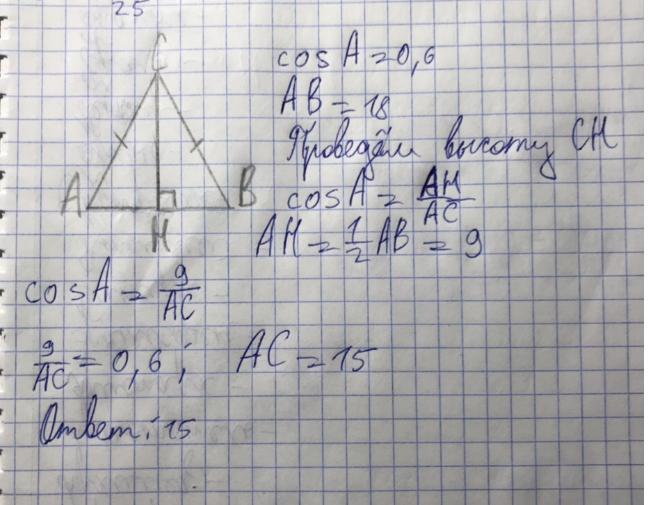 25
C
cosA = 0,6
AB = 18
Проведём высоту CH
A
B
H
cosA = AH/AC
AH = 1/2 AB = 9
cosA = 9/AC
9/AC = 0,6 ; AC = 15
Ответ: 15